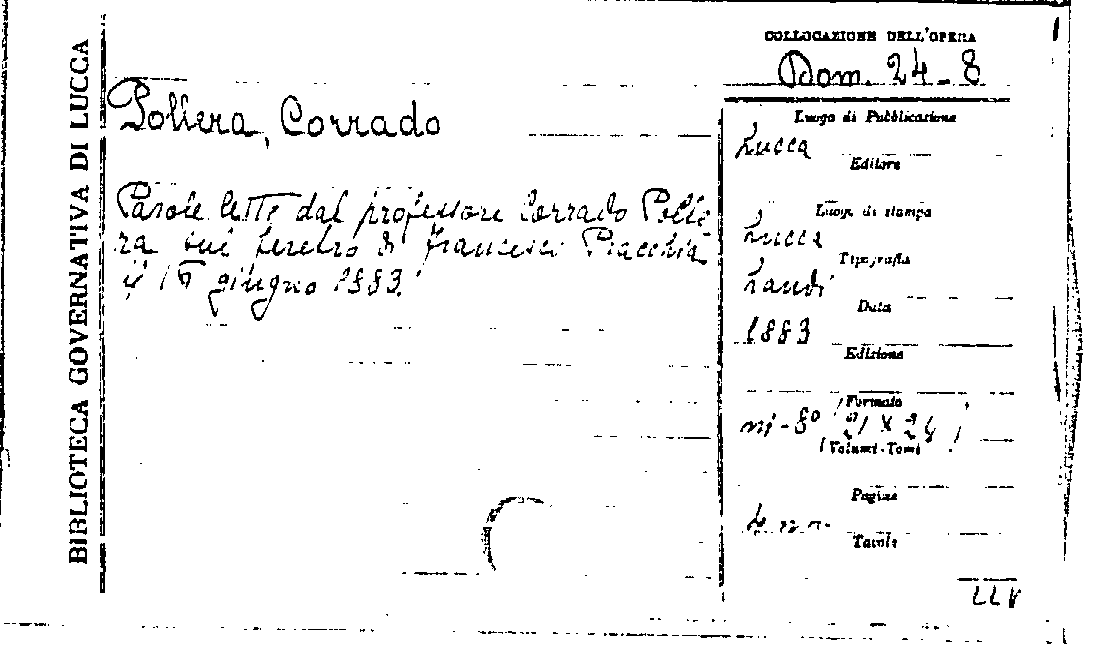 BIBLIOTECA GOVERNATIVA DI LUCCA
COLLOCAZIONE DELL'OPERA
Dom. 24-8
Pollera, Corrado
Parole lette dal professore Corrado Polle-
ra sul feretro di Francesco Pracchia
giugno 1883.
Luogo di Pubblicazione
Lucca
Editore
Luog. di stampa
Lucca
Tipografia
Landi
Data
1883
Edizione
Formato
in-8° (21 x 24)
Volumi-Tomi
Pagine
Tavole